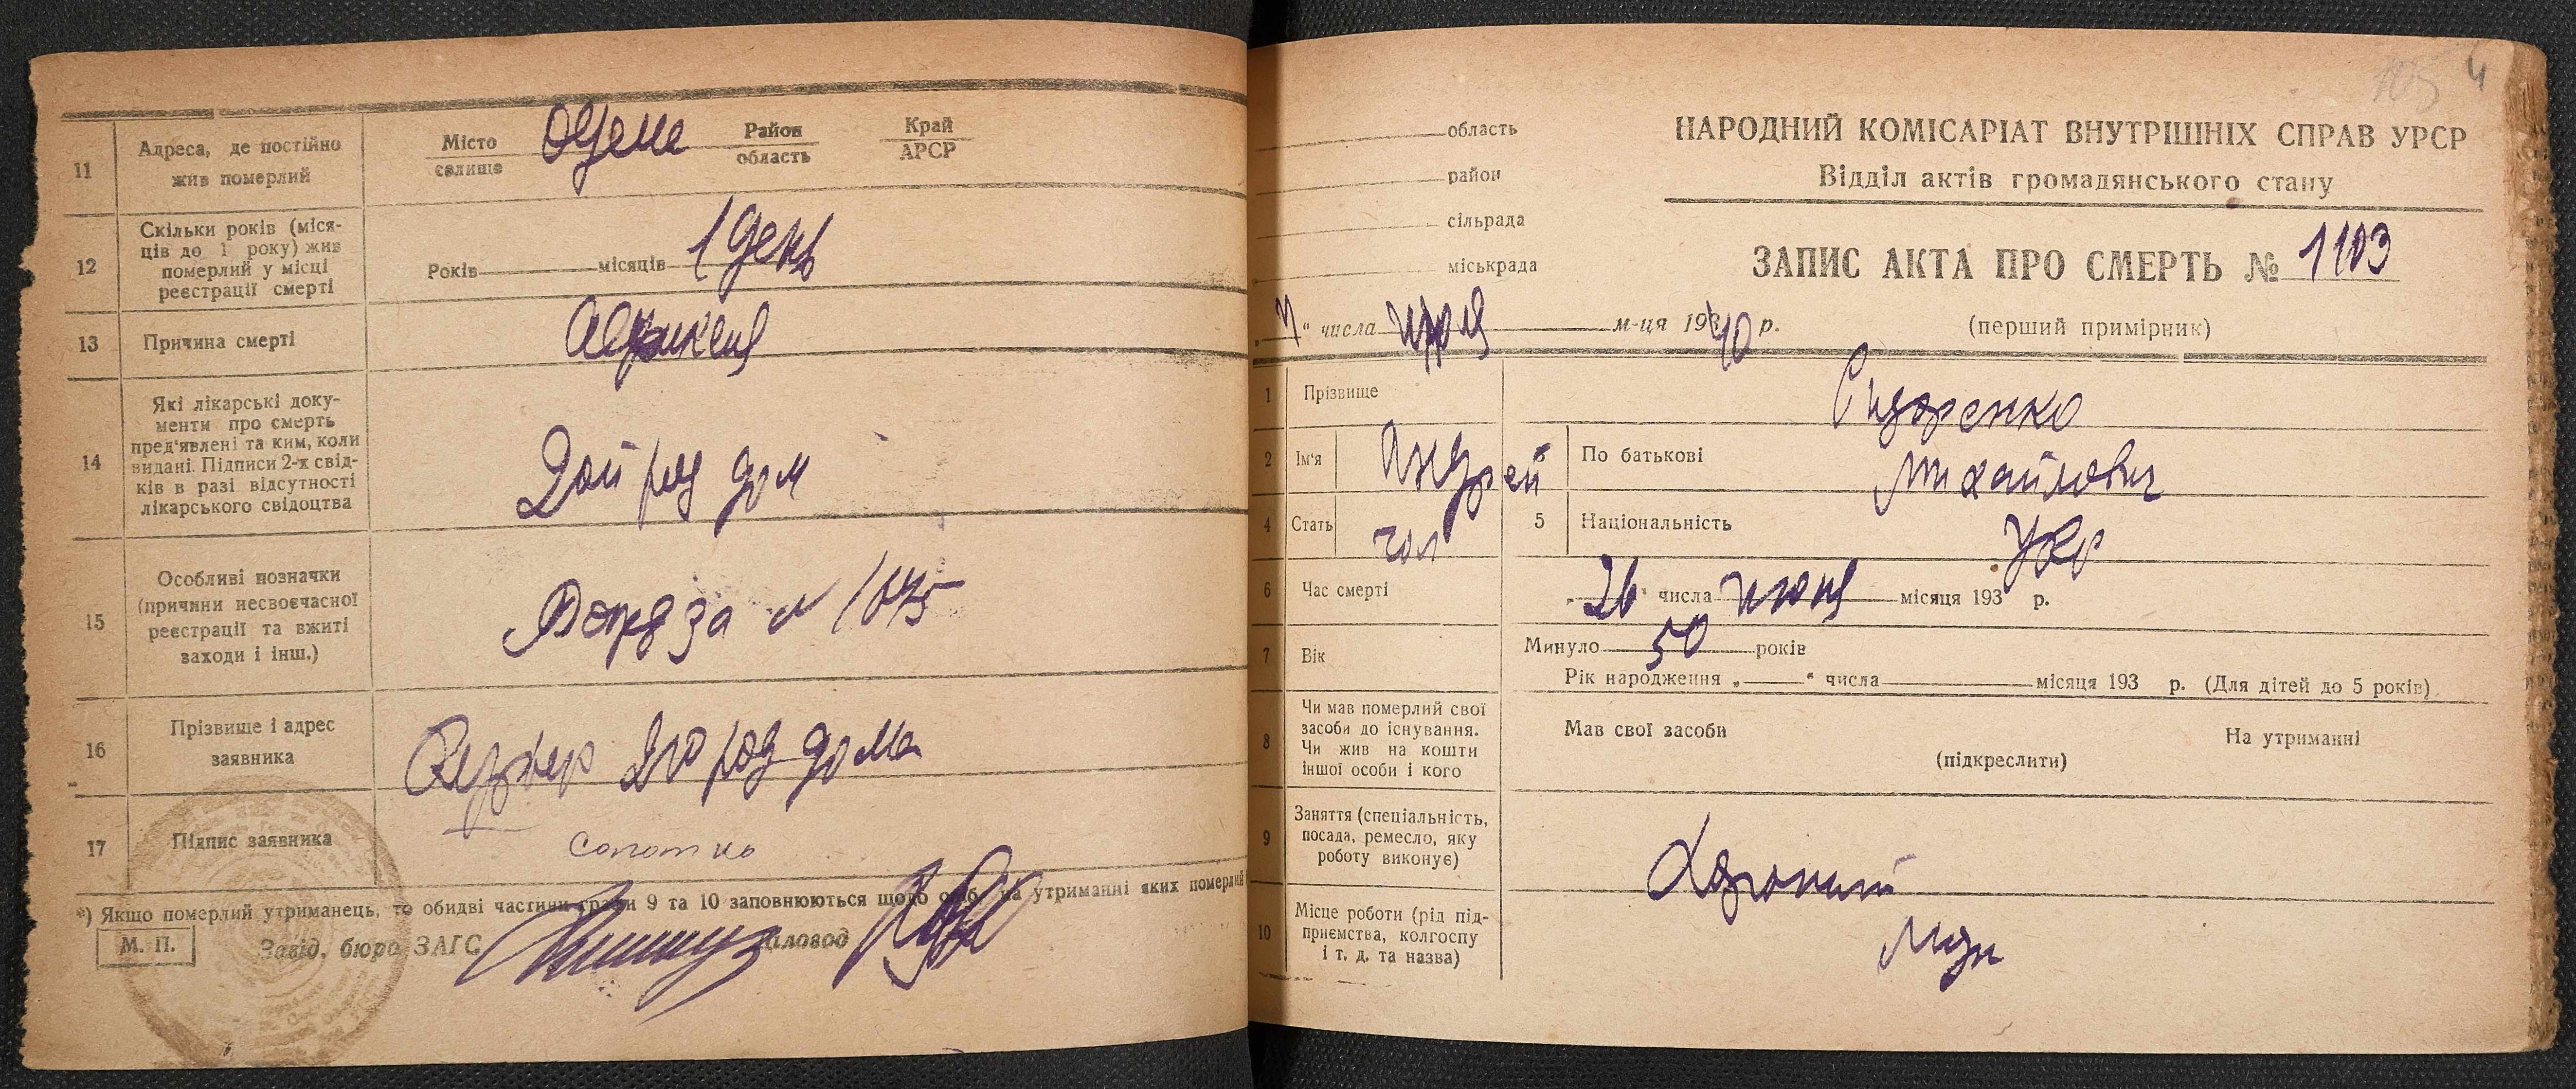 11
Адреса, де постійно
жив померлий
Місто
селище
Одеса
Район
область
Край
АРСР
12
Скільки років (міся-
ців до 1 року) жив
померлий у місці
реєстрації смерті
Років місяців 1 день
13
Причина смерті
14
Які лікарські доку-
менти про смерть
пред'явлені та ким, коли
видані. Підписи 2-х свід-
ків в разі відсутності
лікарського свідоцтва
дом
15
Особливі позначки
(причини несвоєчасної
реєстрації та вжиті
заходи і інш.)
за № 1045
16
Прізвище і адрес
заявника
дома
17
Підпис заявника
*) Якщо померлий утриманець, то обидві частини графи 9 та 10 заповнюються щодо осіб, на утриманні яких померлий
М. П.
Завід. бюро ЗАГС
Діловод
4
область
район
сільрада
міськрада
НАРОДНИЙ КОМІСАРІАТ ВНУТРІШНІХ СПРАВ УРСР
Відділ актів громадянського стану
ЗАПИС АКТА ПРО СМЕРТЬ № 1103
(перший примірник)
" числа июля м-ця 1940 р.
1
Прізвище
Сидоренко
2
Ім'я
Андрей
По батькові
Михайлович
4
Стать
чол
5
Національність
Укр
6
Час смерті
„26" числа июня місяця 193 р.
7
Вік
Минуло 50 років
Рік народження „ " числа місяця 193 р. (Для дітей до 5 років)
8
Чи мав померлий свої
засоби до існування.
Чи жив на кошти
іншої особи і кого
Мав свої засоби
На утриманні
(підкреслити)
9
Заняття (спеціальність,
посада, ремесло, яку
роботу виконує)
10
Місце роботи (рід під-
приємства, колгоспу
і т. д. та назва)